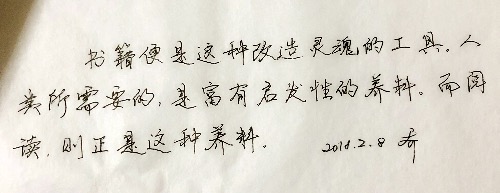 书籍便是这种改造灵魂的工具。人
类所需要的，是富有启发性的养料。而阅
读，则正是这种养料。 2018.2.8